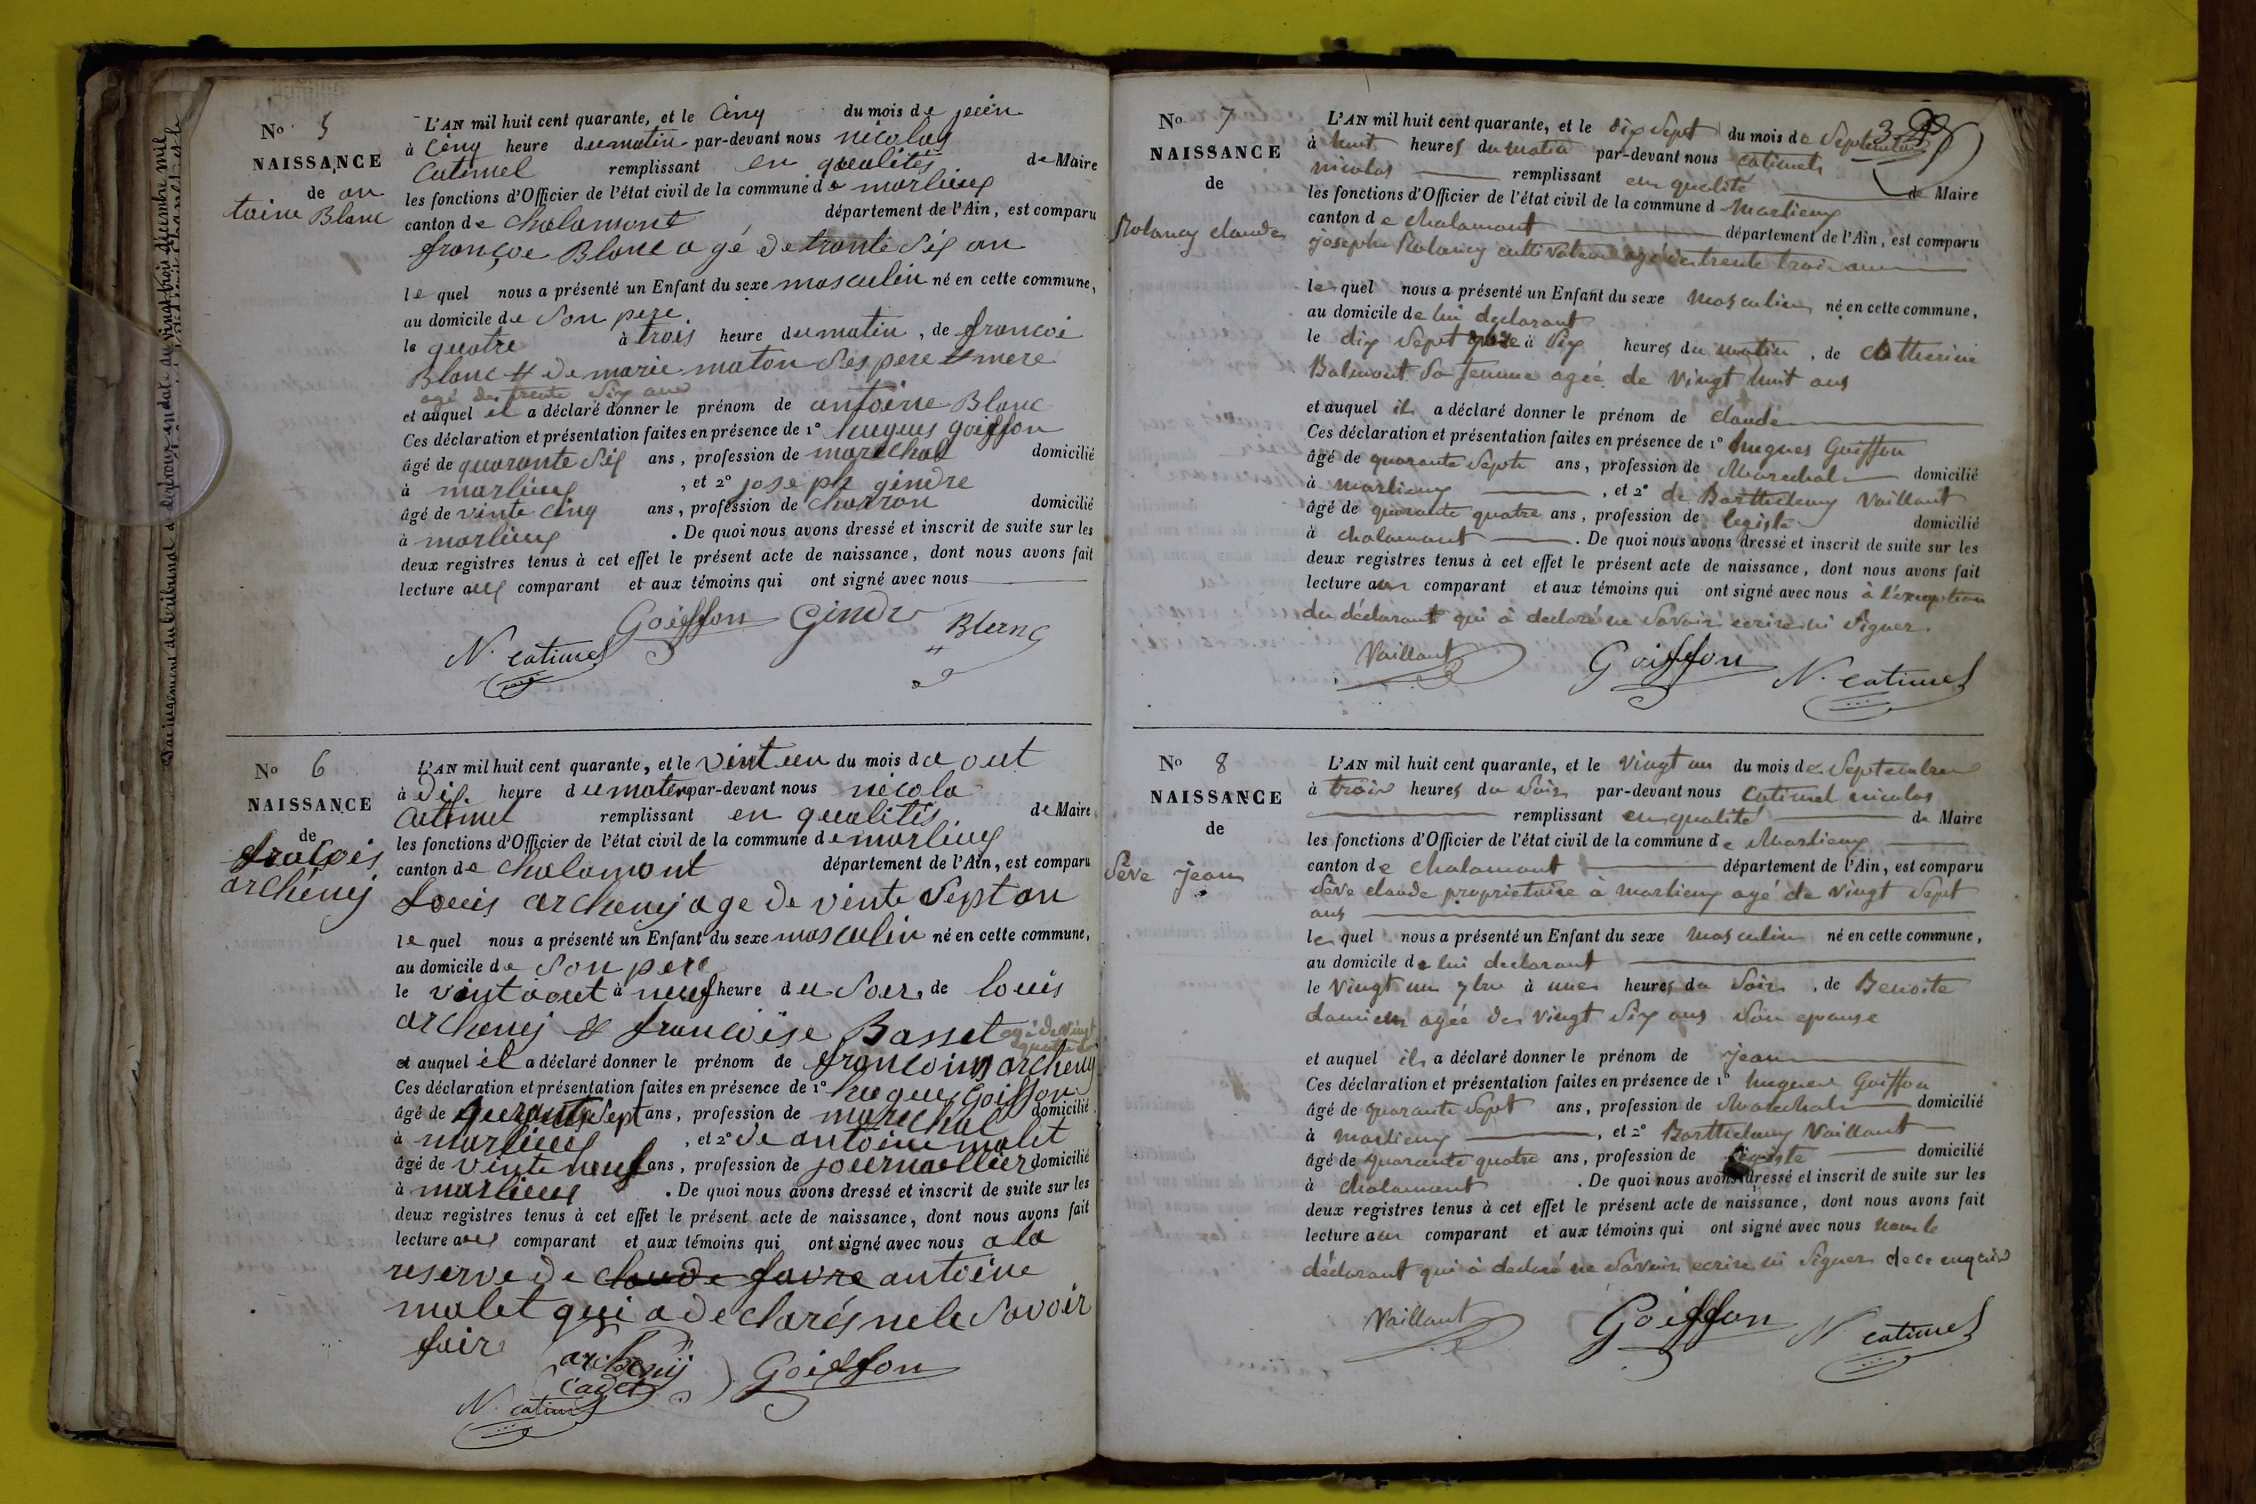 No 5
NAISSANCE
de an
toine Blanc
L'AN mil huit cent quarante, et le cinq du mois de jeuin
à cinq heure du matin par-devant nous nicolas
Catimel remplissant en qualités de Maire
les fonctions d'Officier de l'état civil de la commune de marlieux
canton de chalamont département de l'Ain, est comparu
françoe Blanc agé de trante six an
le quel nous a présenté un Enfant du sexe masculin né en cette commune,
au domicile de son pere
le quatre à trois heure du matin, de francoi
Blanc & de marie maton ses pere & mere
agé de trente six ans
et auquel il a déclaré donner le prénom de antoine Blanc
Ces déclaration et présentation faites en présence de 1° hugues goiffon
âgé de quarante six ans, profession de marechal domicilié
à marlieux, et 2° joseph gindre
âgé de vinte cinq ans, profession de charron domicilié
à marlieux. De quoi nous avons dressé et inscrit de suite sur les
deux registres tenus à cet effet le présent acte de naissance, dont nous avons fait
lecture aux comparant et aux témoins qui ont signé avec nous
Goiffon Gindre Blanc
N. catimel
No 6
NAISSANCE
de
fracois
archeny
L'AN mil huit cent quarante, et le vint un du mois d aout
à dix heure du maten par-devant nous nicola
Catimel remplissant en qualités de Maire
les fonctions d'Officier de l'état civil de la commune de marlieux
canton de chalamont département de l'Ain, est comparu
Louis archeny age de vinte sept an
le quel nous a présenté un Enfant du sexe masculin né en cette commune,
au domicile de son pere
le vint aout à neuf heure du soir, de louis
archeny & francoise Basset agé de vingt
quatre
et auquel il a déclaré donner le prénom de francoi archeny
Ces déclaration et présentation faites en présence de 1° hugues Goiffon
âgé de quarante sept ans, profession de marechal domicilié
à marlieux, et 2° de antoine malet
âgé de vinte neuf ans, profession de journaellier domicilié
à marlieux. De quoi nous avons dressé et inscrit de suite sur les
deux registres tenus à cet effet le présent acte de naissance, dont nous avons fait
lecture aux comparant et aux témoins qui ont signé avec nous a la
reserve de claude favre antoine
malet qui a declarés ne le savoir
faire
archeny
cadet
Goiffon
N. catimel
No 7
NAISSANCE
de
Rolancy claude
L'AN mil huit cent quarante, et le dix sept du mois de Septembre
à huit heures du matin par-devant nous catimel
nicolas remplissant en qualité de Maire
les fonctions d'Officier de l'état civil de la commune d Marlieux
canton de chalamont département de l'Ain, est comparu
josephe Rolancy cultivateur agé de trente trois ans
le quel nous a présenté un Enfant du sexe masculin né en cette commune,
au domicile de lui declarant
le dix sept 7bre à six heures du matin, de Catherine
Balmont sa femme agée de vingt huit ans
et auquel il a déclaré donner le prénom de claude
Ces déclaration et présentation faites en présence de 1° hugues Goiffon
âgé de quarante sept ans, profession de Marechal domicilié
à Marlieux, et 2° de Barthelemy Vaillant
âgé de quarante quatre ans, profession de legiste domicilié
à chalamont. De quoi nous avons dressé et inscrit de suite sur les
deux registres tenus à cet effet le présent acte de naissance, dont nous avons fait
lecture aux comparant et aux témoins qui ont signé avec nous à l'exception
du déclarant qui à declaré ne savoir ecrire ni signer.
Vaillant Goiffon N. catimel
No 8
NAISSANCE
de
Sève jean
L'AN mil huit cent quarante, et le vingt un du mois de Septembre
à trois heures du soir par-devant nous Catimel nicolas
remplissant en qualité de Maire
les fonctions d'Officier de l'état civil de la commune de Marlieux
canton de chalamont département de l'Ain, est comparu
Sève claude proprietaire à marlieux agé de vingt sept
ans
le quel nous a présenté un Enfant du sexe masculin né en cette commune,
au domicile de lui declarant
le vingt un 7bre à une heures du soir, de Benoite
damien agée de vingt six ans son epouse
et auquel il a déclaré donner le prénom de jean
Ces déclaration et présentation faites en présence de 1° hugues Goiffon
âgé de quarante sept ans, profession de Marechal domicilié
à Marlieux, et 2° Barthelemy Vaillant
âgé de quarante quatre ans, profession de legiste domicilié
à chalamont. De quoi nous avons dressé et inscrit de suite sur les
deux registres tenus à cet effet le présent acte de naissance, dont nous avons fait
lecture aux comparant et aux témoins qui ont signé avec nous non le
déclarant qui à declaré ne savoir ecrire ni signer de ce enquis
Vaillant Goiffon N. catimel